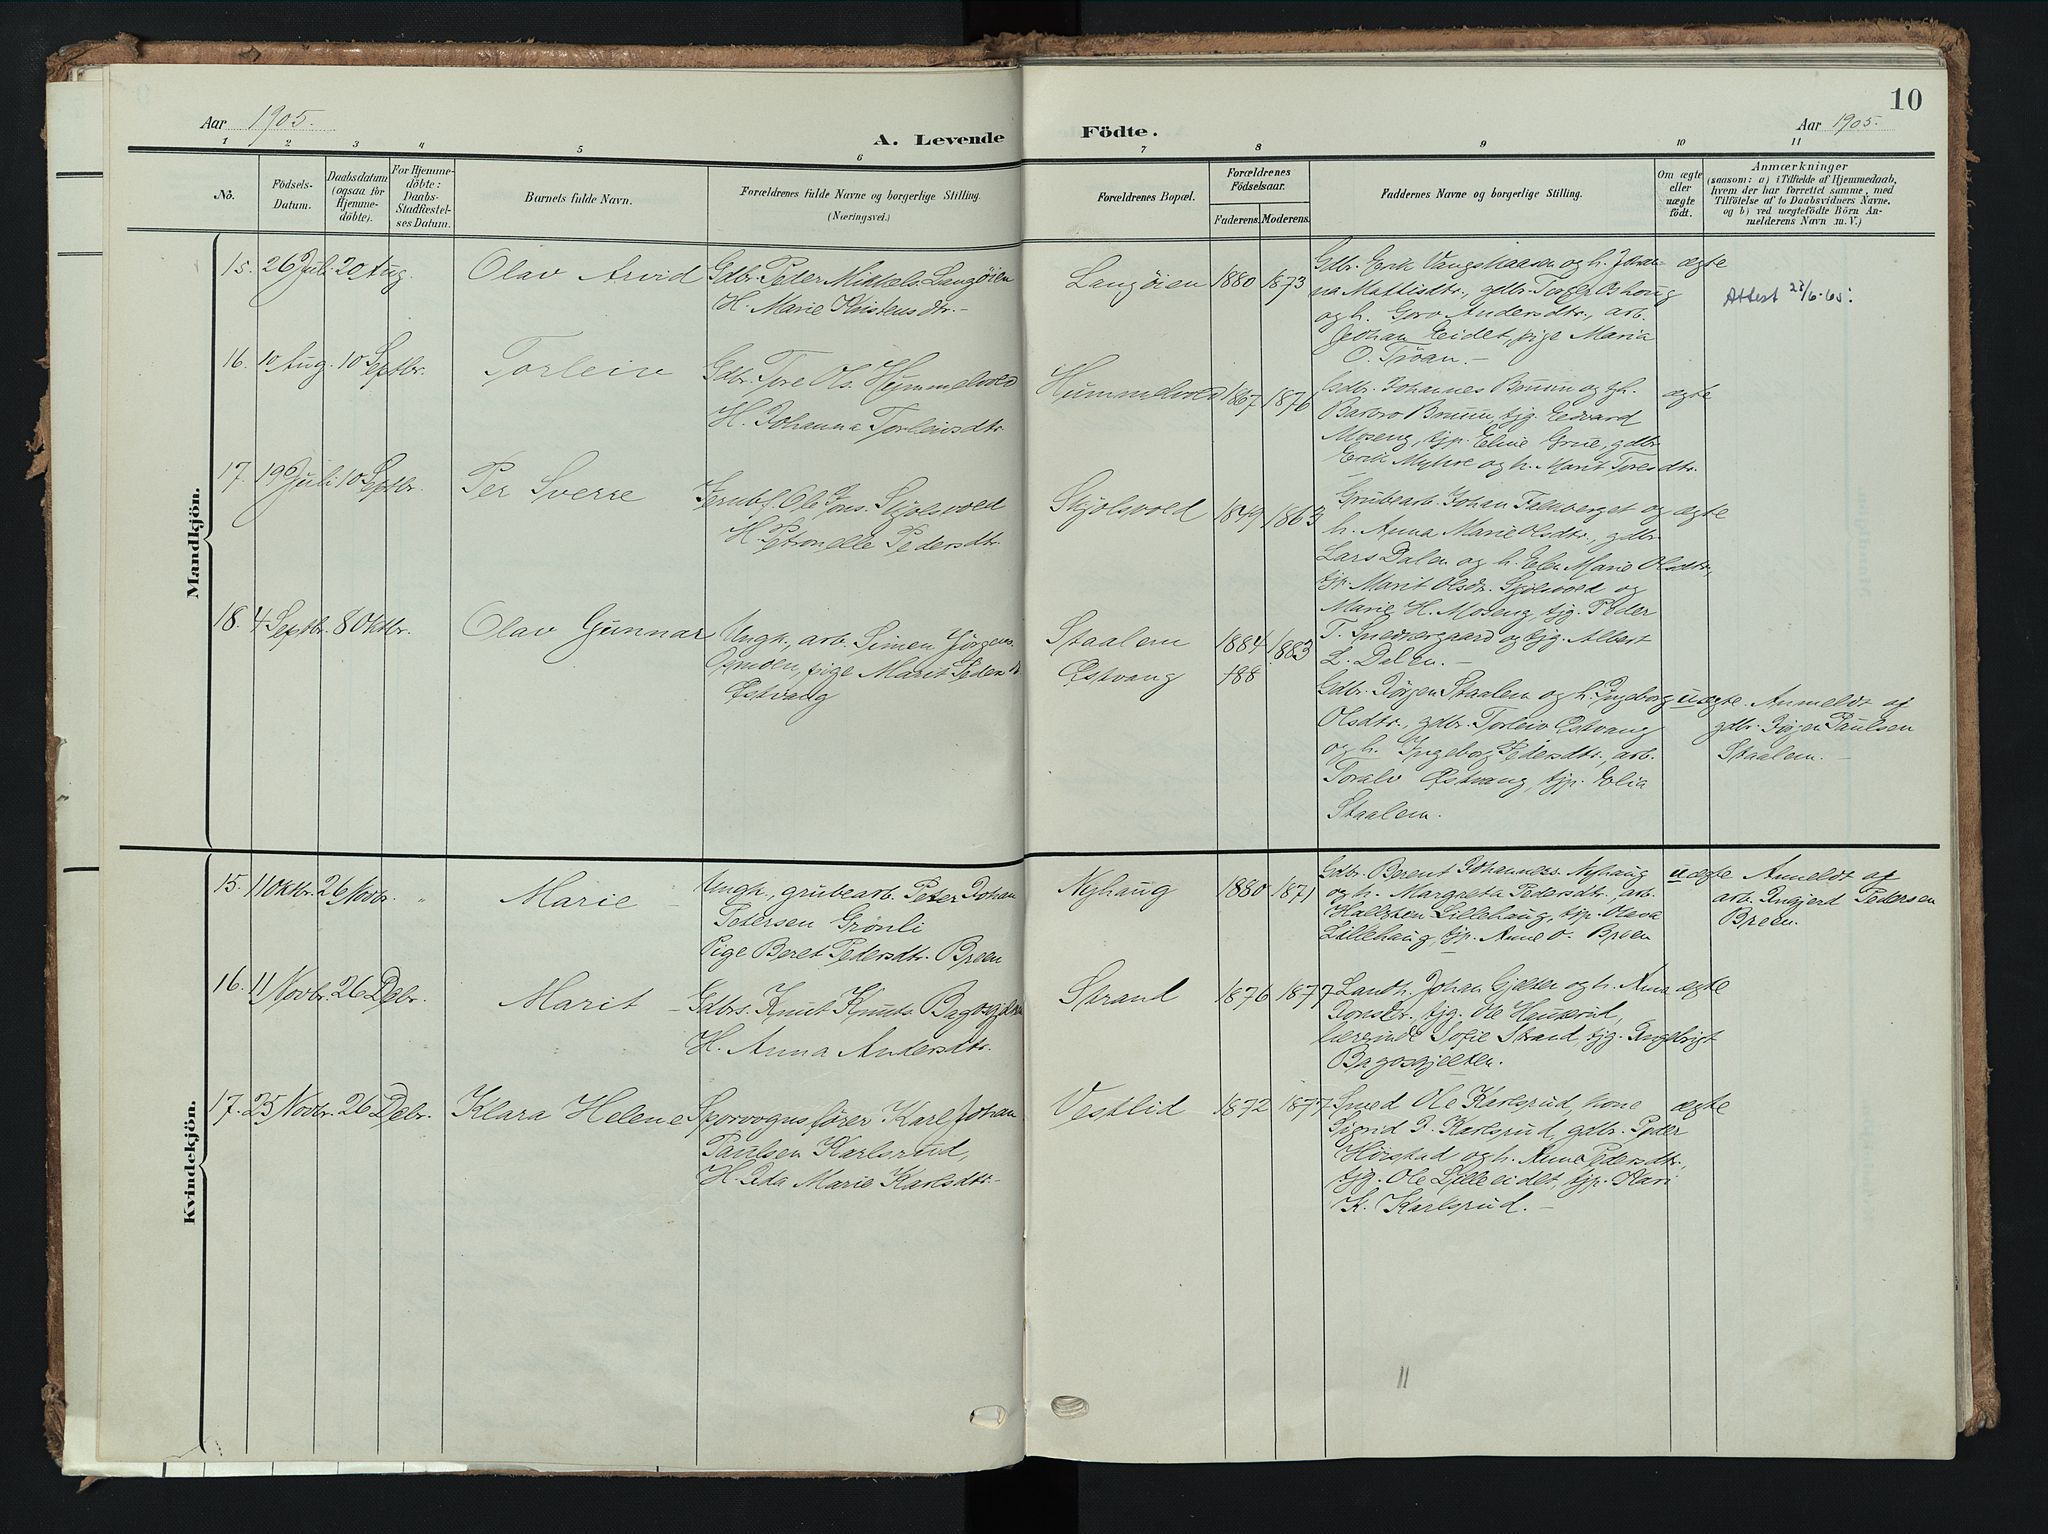 10
Aar 1905.
A. Levende Födte.
Aar 1905.
1 2 3 4 5 6 7 8 9 10 11
No.
Födsels-
Datum.
Daabsdatum
(ogsaa for
Hjemme-
döbte).
For Hjemme-
döbte:
Daabs-
Stadfæstel-
ses Datum.
Barnets fulde Navn.
Forældrenes fulde Navne og borgerlige Stilling.
(Næringsvei.)
Forældrenes Bopæl.
Forældrenes
Födselsaar.
Faderens. Moderens.
Faddernes Navne og borgerlige Stilling.
Om ægte
eller
uægte
födt.
Anmærkninger
(saasom: a) i Tilfælde af Hjemmedaab,
hvem der har forrettet samme, med
Tilföielse af to Daabsvidners Navne,
og b) ved uægtefödte Börn An-
melderens Navn m. V.)
Mandkjön.
15. 26 Juli 20 Aug. Olav Arvid
Gdbr. Peder Mikkels. Langöien
H. Marie Kristensdtr. -
Langöien 1880 1873
Gdbr. Erik Vangskaasen og h. Johan-
na Mattisdtr., gdbr.
og h. Goro Andersdtr., arb.
Johan Eidet, pige Maria
O. Tröan. -
ægte
Attest 23/6-65.
16. 10 Aug. 10 Septbr. Torleiv
Gdbr. Tore Ols. Hummelvold
H. Johanna Torleivsdtr.
Hummelvold 1867 1876
Gdbr. Johannes Bruun og h.
Barbro Bruun, tjg. Edvard
Moseng, tjp. Eline Grue, gdbr.
Erik Myhre og h. Marit Toresdtr.
ægte
17. 19 Juli 10 Septbr. Per Sverre
Ole Jons. Skjolsvold
H. Petronelle Pedersdtr.
Skjolsvold 1849 1863
Grubearb. Johan Falkberget og
h. Anna Marie Olsdtr., gdbr.
Lars Dalen og h. Elen Marie Olsdtr.,
tjp. Marit Olsdr. Skjolsvold og
Marie H. Moseng, tjg. Peder
T. Snedkergaard og tjg. Albert
L. Dalen. -
ægte
18. 4 Septbr. 8 Oktbr. Olav Gunnar
Ungk., arb. Simen Jörgens.
pige Marit Pedersdtr.
Østvang
Staalem 1884 1883
Østvang
Gdbr. Jörgen Staalem og h. Ingeborg
Olsdtr., gdbr. Torleiv Østvang
og h. Ingeborg Pedersdtr., arb.
Toralv Østvang, tjp. Elia
Staalem.
uægte.
Anmeldt af
gdbr. Jörgen Paulsen
Staalem. -
Kvindekjön.
15. 1 Oktbr. 26 Novbr. " Marie -
Ungk., grubearb. Peter Johan
Petersen Grönli
Pige Beret Pedersdtr. Breen
Nyhaug 1880 1871
Gdbr. Berent Johannes. Nyhaug
og h. Margreta Pedersdtr., arb.
Hallsten Lillehaug, tjp. Olava
Lillehaug, tjp. Anne O. Breen
uægte
Anmeldt af
arb. Ingjert Pedersen
Breen.
16. 11 Novbr. 26 Debr. Marit -
Gdbrs. Knut Knuts. Bagosgjelten
H. Anna Andersdtr.
Strand 1876 1877
Landh. Johan Gjelten og h. Anna
Jonsdr., tjg. Ole Haukrud,
lærerinde Sofie Strand, tjg. Ingbrigt
Bagosgjelten.
ægte
17. 25 Novbr. 26 Debr. Klara Helene
Sporvognsförer Karl Johan
Paulsen Karlsrud,
H. Ida Marie Karlsdtr. -
Vestlid 1872 1877
Smed Ole Karlsrud, kone
Sigrid P. Karlsrud, gdbr. Peder
Hörstad og h. Anne Pedersdtr.,
tjg. Ole Lilleeidet, tjp. Kari
K. Karlsrud. -
ægte
11